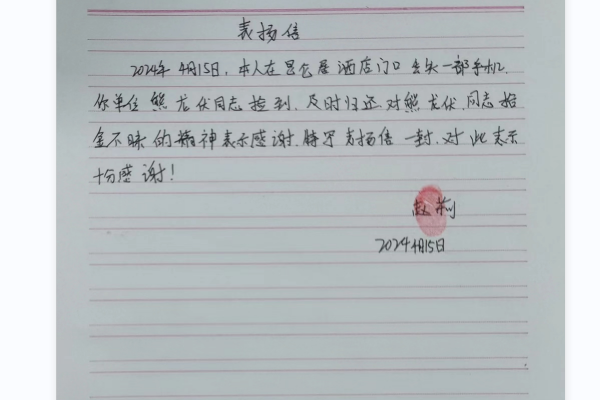 表扬信
2024年4月15日，本人在昆仑居酒店门口丢失一部手机.
你单位熊龙伏同志捡到.及时归还对熊龙伏.同志拾
金不昧的精神表示感谢.特写表扬信一封.对此表示
十分感谢！
赵莉
2024年4月15日